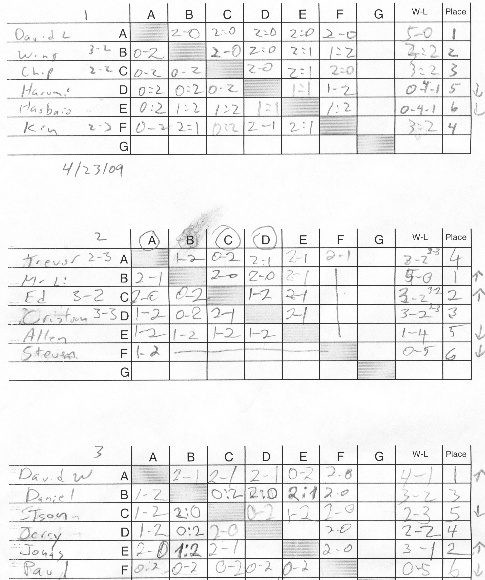 1 A B C D E F G W-L Place
David L A 2-0 2:0 2:0 2:0 2-0 5-0 1
Wing 3-2 B 0-2 2-0 2:0 2:1 1:2 3:2 2
Chip 2-2 C 0-2 0-2 2-0 2:1 2:0 3:2 3
Harumi D 0:2 0:2 0-2 1:1 1-2 0-4-1 5 ↓
E 0:2 1:2 1:2 1:1 1:2 0-4-1 6 ↓
Kim 2-3 F 0-2 2:1 0:2 2-1 2:1 3:2 4
G
4/23/09
2 A B C D E F G W-L Place
Trevor 2-3 A 1-2 0-2 2:1 2-1 2-1 3-2 4
Mr Li B 2-1 2-0 2-0 2-1 5-0 1 ↑
Ed 3-2 C 2-0 0-2 1-2 2-1 3-2 2 ↑
3-3 D 1-2 0-2 2-1 2-1 3-2 3
Allen E 1-2 1-2 1-2 1-2 1-4 5 ↓
Steven F 1-2 0-5 6 ↓
G
3 A B C D E F G W-L Place
David W A 2-1 2-1 2-1 0-2 2-0 4-1 1 ↑
Daniel B 1-2 0:2 2:0 2:1 2-0 3-2 3
C 1-2 2:0 0-2 1-2 2-0 2-3 5 ↓
D 1-2 0:2 2-0 2-0 2-2 4
E 2-0 1:2 2-1 2-0 3-1 2 ↑
Paul F 0-2 0-2 0-2 0-2 0-2 0-5 6 ↓